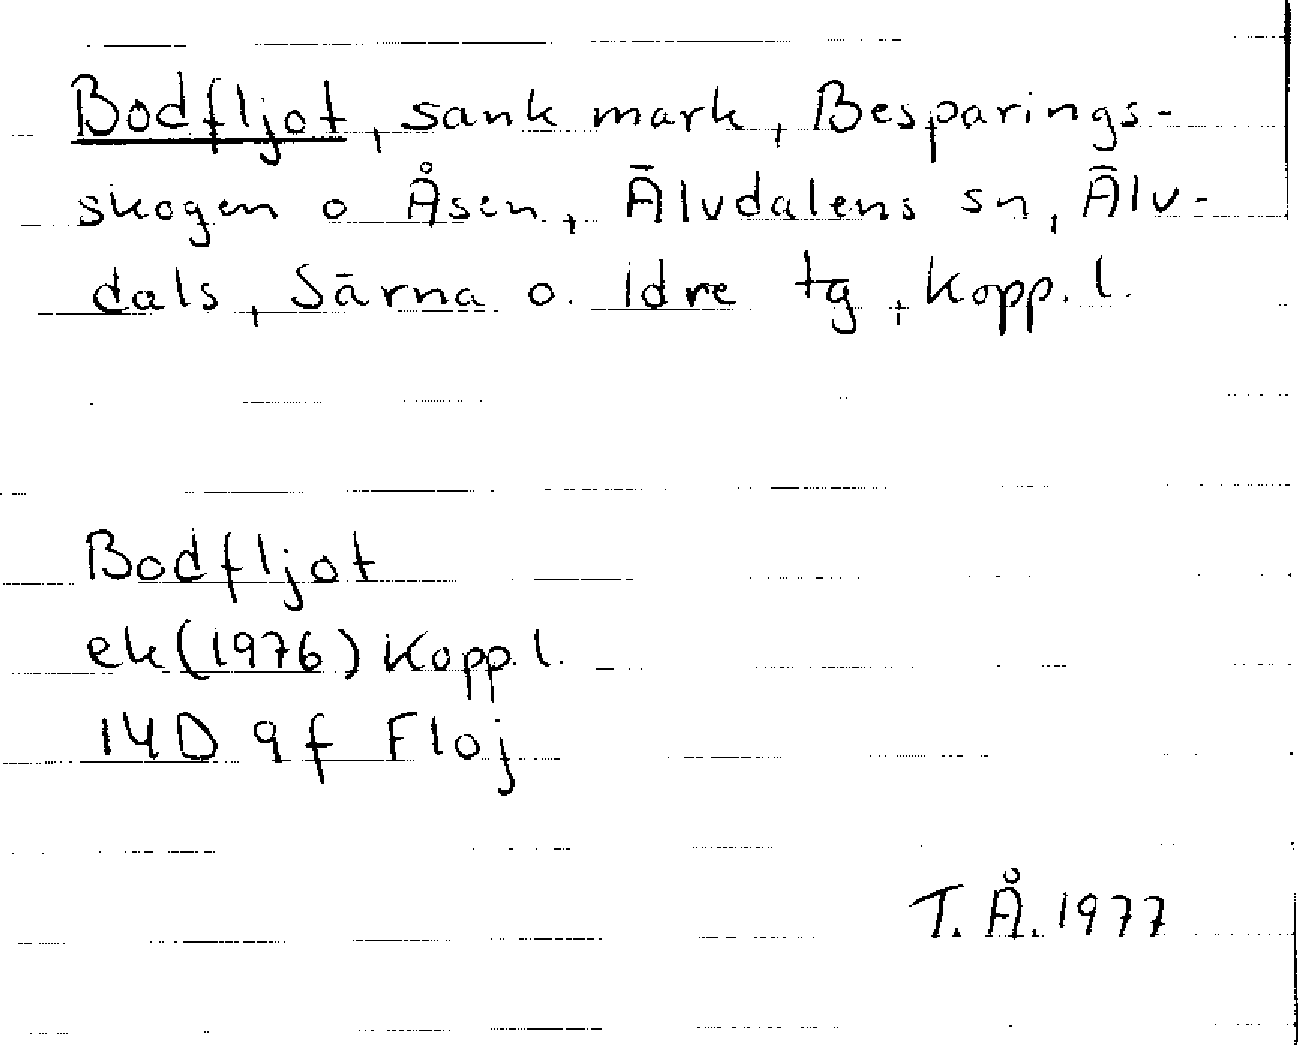 Bodfljot, sank mark, Besparings-
skogen o Åsen, Älvdalens sn, Älv-
dals, Särna o. Idre tg, Kopp. l.
Bodfljot
ek (1976) Kopp. l.
14D 9f Floj
T. Å. 1977